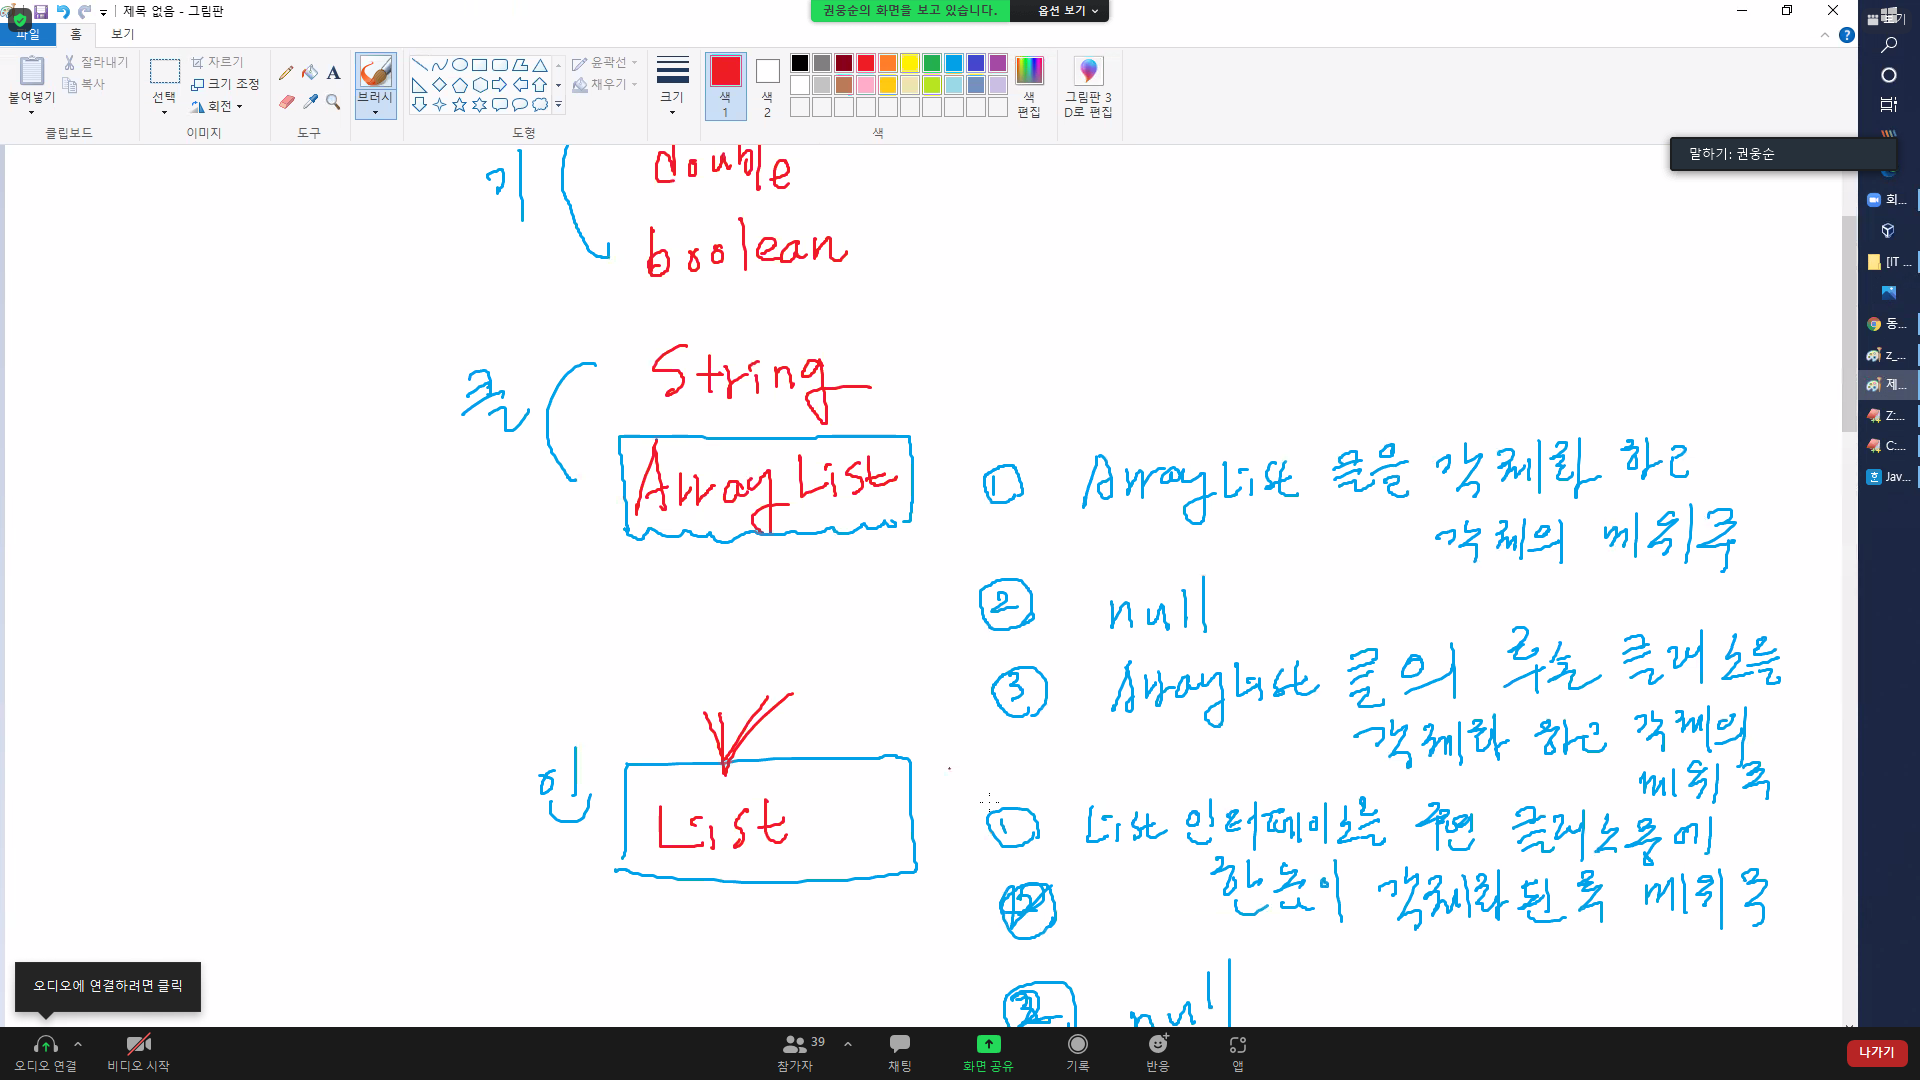 제목 없음 - 그림판
권웅순의 화면을 보고 있습니다.
옵션 보기
파일
홈
보기
붙여넣기
잘라내기
복사
클립보드
선택
자르기
크기 조정
회전
이미지
도구
브러시
도형
윤곽선
채우기
크기
색
1
색
2
색
편집
색
그림판 3
D로 편집
말하기: 권웅순
회...
[IT ...
동...
z_...
제...
Z:...
C:...
Jav...
기
double
boolean
클
String
ArrayList
① ArrayList 클을 객체화 하고
객체의 메위주
② null
③ ArrayList 클의 후손 클래스를
객체화 하고 객체의
메위주
인
List
① List 인터페이스를 구현 클래스중에
한놈이 객체화된 메위주
null
오디오에 연결하려면 클릭
오디오 연결
비디오 시작
39
참가자
채팅
화면 공유
기록
반응
앱
나가기